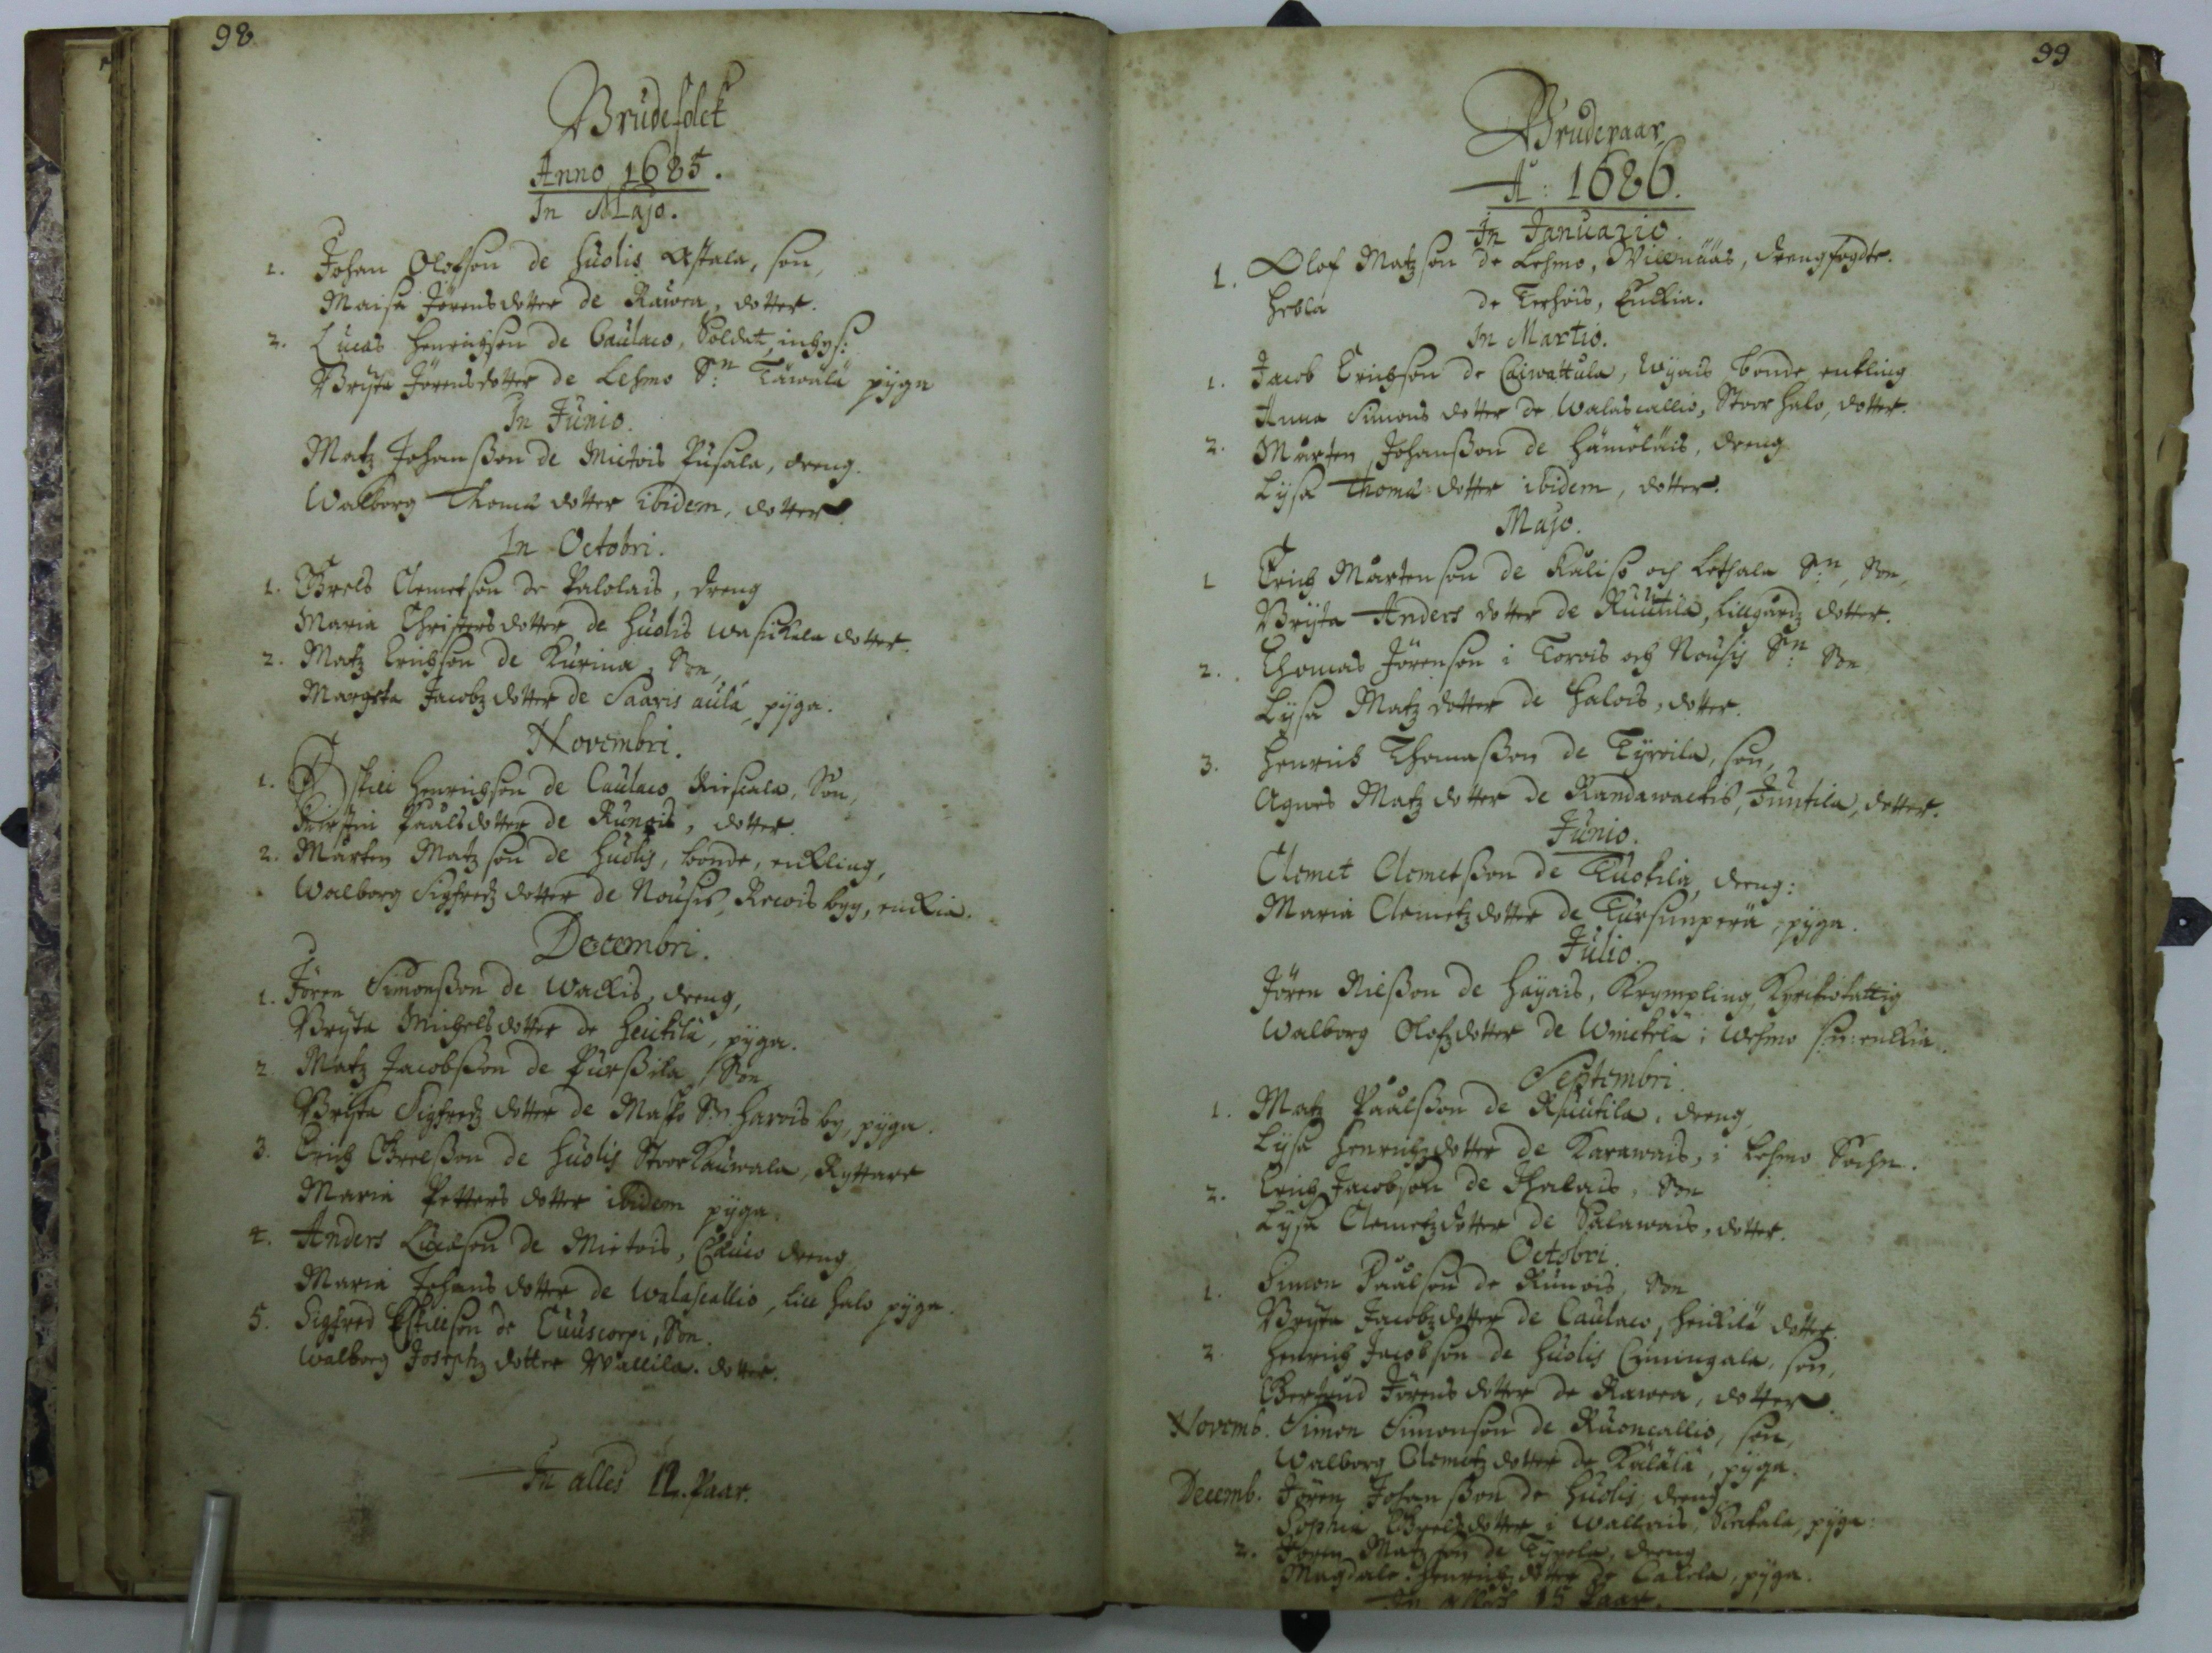 98
Brudefolck
Anno 1685.
In Majo.
1. Johan Olofson de Huolis Astala, son,
Maisa Jörensdotter de Rawea, dotter.
2. Lucas Henrichson de Caulaco, Soldat, inhys:
Bryta Jörensdotter de Lehmo Sn: Täwälä pyga
In Junio.
Matz Johansson de Mietois Pusala, dreng.
Walborg Thomæ dotter ibidem, dotter.
In Octobri.
1. Brels Clemetson de Palolais, dreng
Maria Christersdotter de Huolis wasikkala dotter.
2. Matz Erichson de Kurina, Son,
Margeta Jacobz dotter de Saaris aula, pyga.
Novembri.
1. Eskill Henrichson de Caulaco Kirscala, Son,
Kirstin Påålsdotter de Runois, dotter.
2. Mårten Matzson de Huolis, bonde, enkling,
Walborg Sigfredz dotter de Nousis, Rewois byy, enkia.
Decembri.
1. Jören Simonsson de Wackis, dreng,
Bryta Michelsdotter de Heickilä, pyga.
2. Matz Jacobsson de Purssila, Son,
Bryta Sigfredz dotter de Masko Sn. Harois by, pyga.
3. Erich Brelsson de Huolis StoorKauwala, Ryttare
Maria Petters dotter ibidem pyga.
4. Anders Lucæson de Mietois, Cauco dreng
Maria Johans dotter de Walascallio, lill halo pyga.
5. Sigfred Eskillson de Cuuscorpi, Son.
Walborg Josephz dotter Wallila. dotter.
In alles 12. Paar.
99
Brudepaar
A: 1686.
In Januario.
1. Olof Matzson de Lehmo, Willnääs, drengfogdte.
Hebla de Terhois, Enkia.
In Martio.
1. Jacob Erichson de Caiwattula, Wyais bonde, enkling
Anna Simons dotter de Walascallio, Stoor halo, dotter.
2. Mårten Johansson de Hämöläis, dreng
Lysa Thomæ dotter ibidem, dotter.
Majo.
1 Erich Mårtenson de Kaliso och Lethala Sn, Son,
Bryta Anders dotter de Ruutila, Lillgårdz dotter.
2. Thomas Jörenson i Torois och Nousis Sn: Son
Lysa Matz dotter de Halois, dotter.
3. Henrich Thomasson de Tyrvila, son,
Agnes Matz dotter de Randawackis, Juntila, dotter.
Junio.
Clemet Clemetsson de Tuokila, dreng:
Maria Clemetz dotter de Tursunperä, pyga.
Julio.
Jören Nilsson de Hayais, Krympling, Kyrkiofattig
Walborg Olofzdotter de Winckelä i Wehmo Sn: enkia.
Septembri.
1. Matz Påålsson de Ruutila, dreng,
Lysa Henrichz dotter de Karawais, i Lehmo Sochn.
2. Erich Jacobson de Ihalais, Son
Lysa Clemetz dotter de Salawais, dotter.
Octobri.
1. Simon Påålson de Runois, Son
Bryta Jacobz dotter de Caulaco, Heickilä dotter.
2. Henrich Jacobson de Huolis Cuningala, son,
Gertrud Jörens dotter de Rawea, dotter.
Novemb. Simon Simonson de Ruoncallio, son,
Walborg Clemetz dotter de Kälälä, pyga.
Decemb. Jören Johansson de Huolis, dreng
Sophia Brelz dotter i Wallais, pyga.
2. Jören Matzson de Typela, dreng
Magdale: Henrichz dotter de Calela, pyga.
In alles 15 Paar.